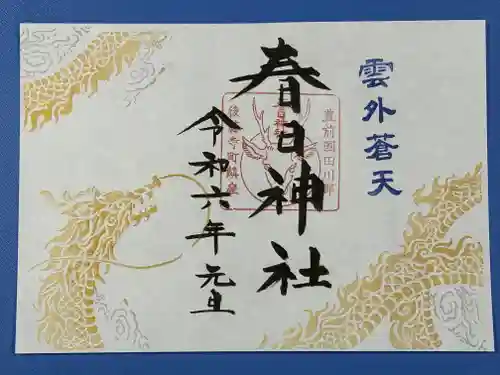 雲外蒼天
豊前国田川郡
春日神社
春日神社
後藤寺町鎮座
令和六年元旦